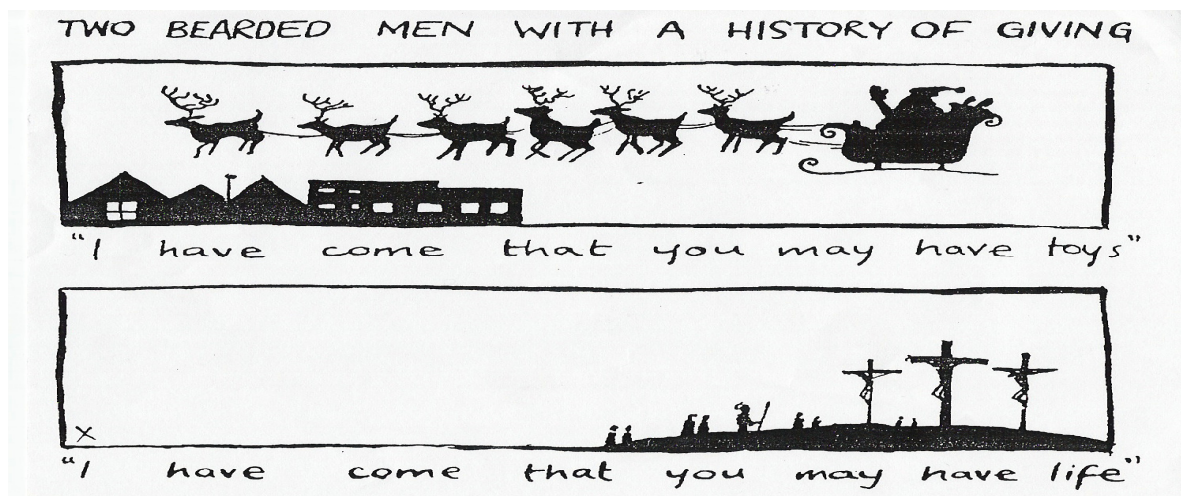 TWO BEARDED MEN WITH A HISTORY OF GIVING
"I have come that you may have toys"
X
"I have come that you may have life"